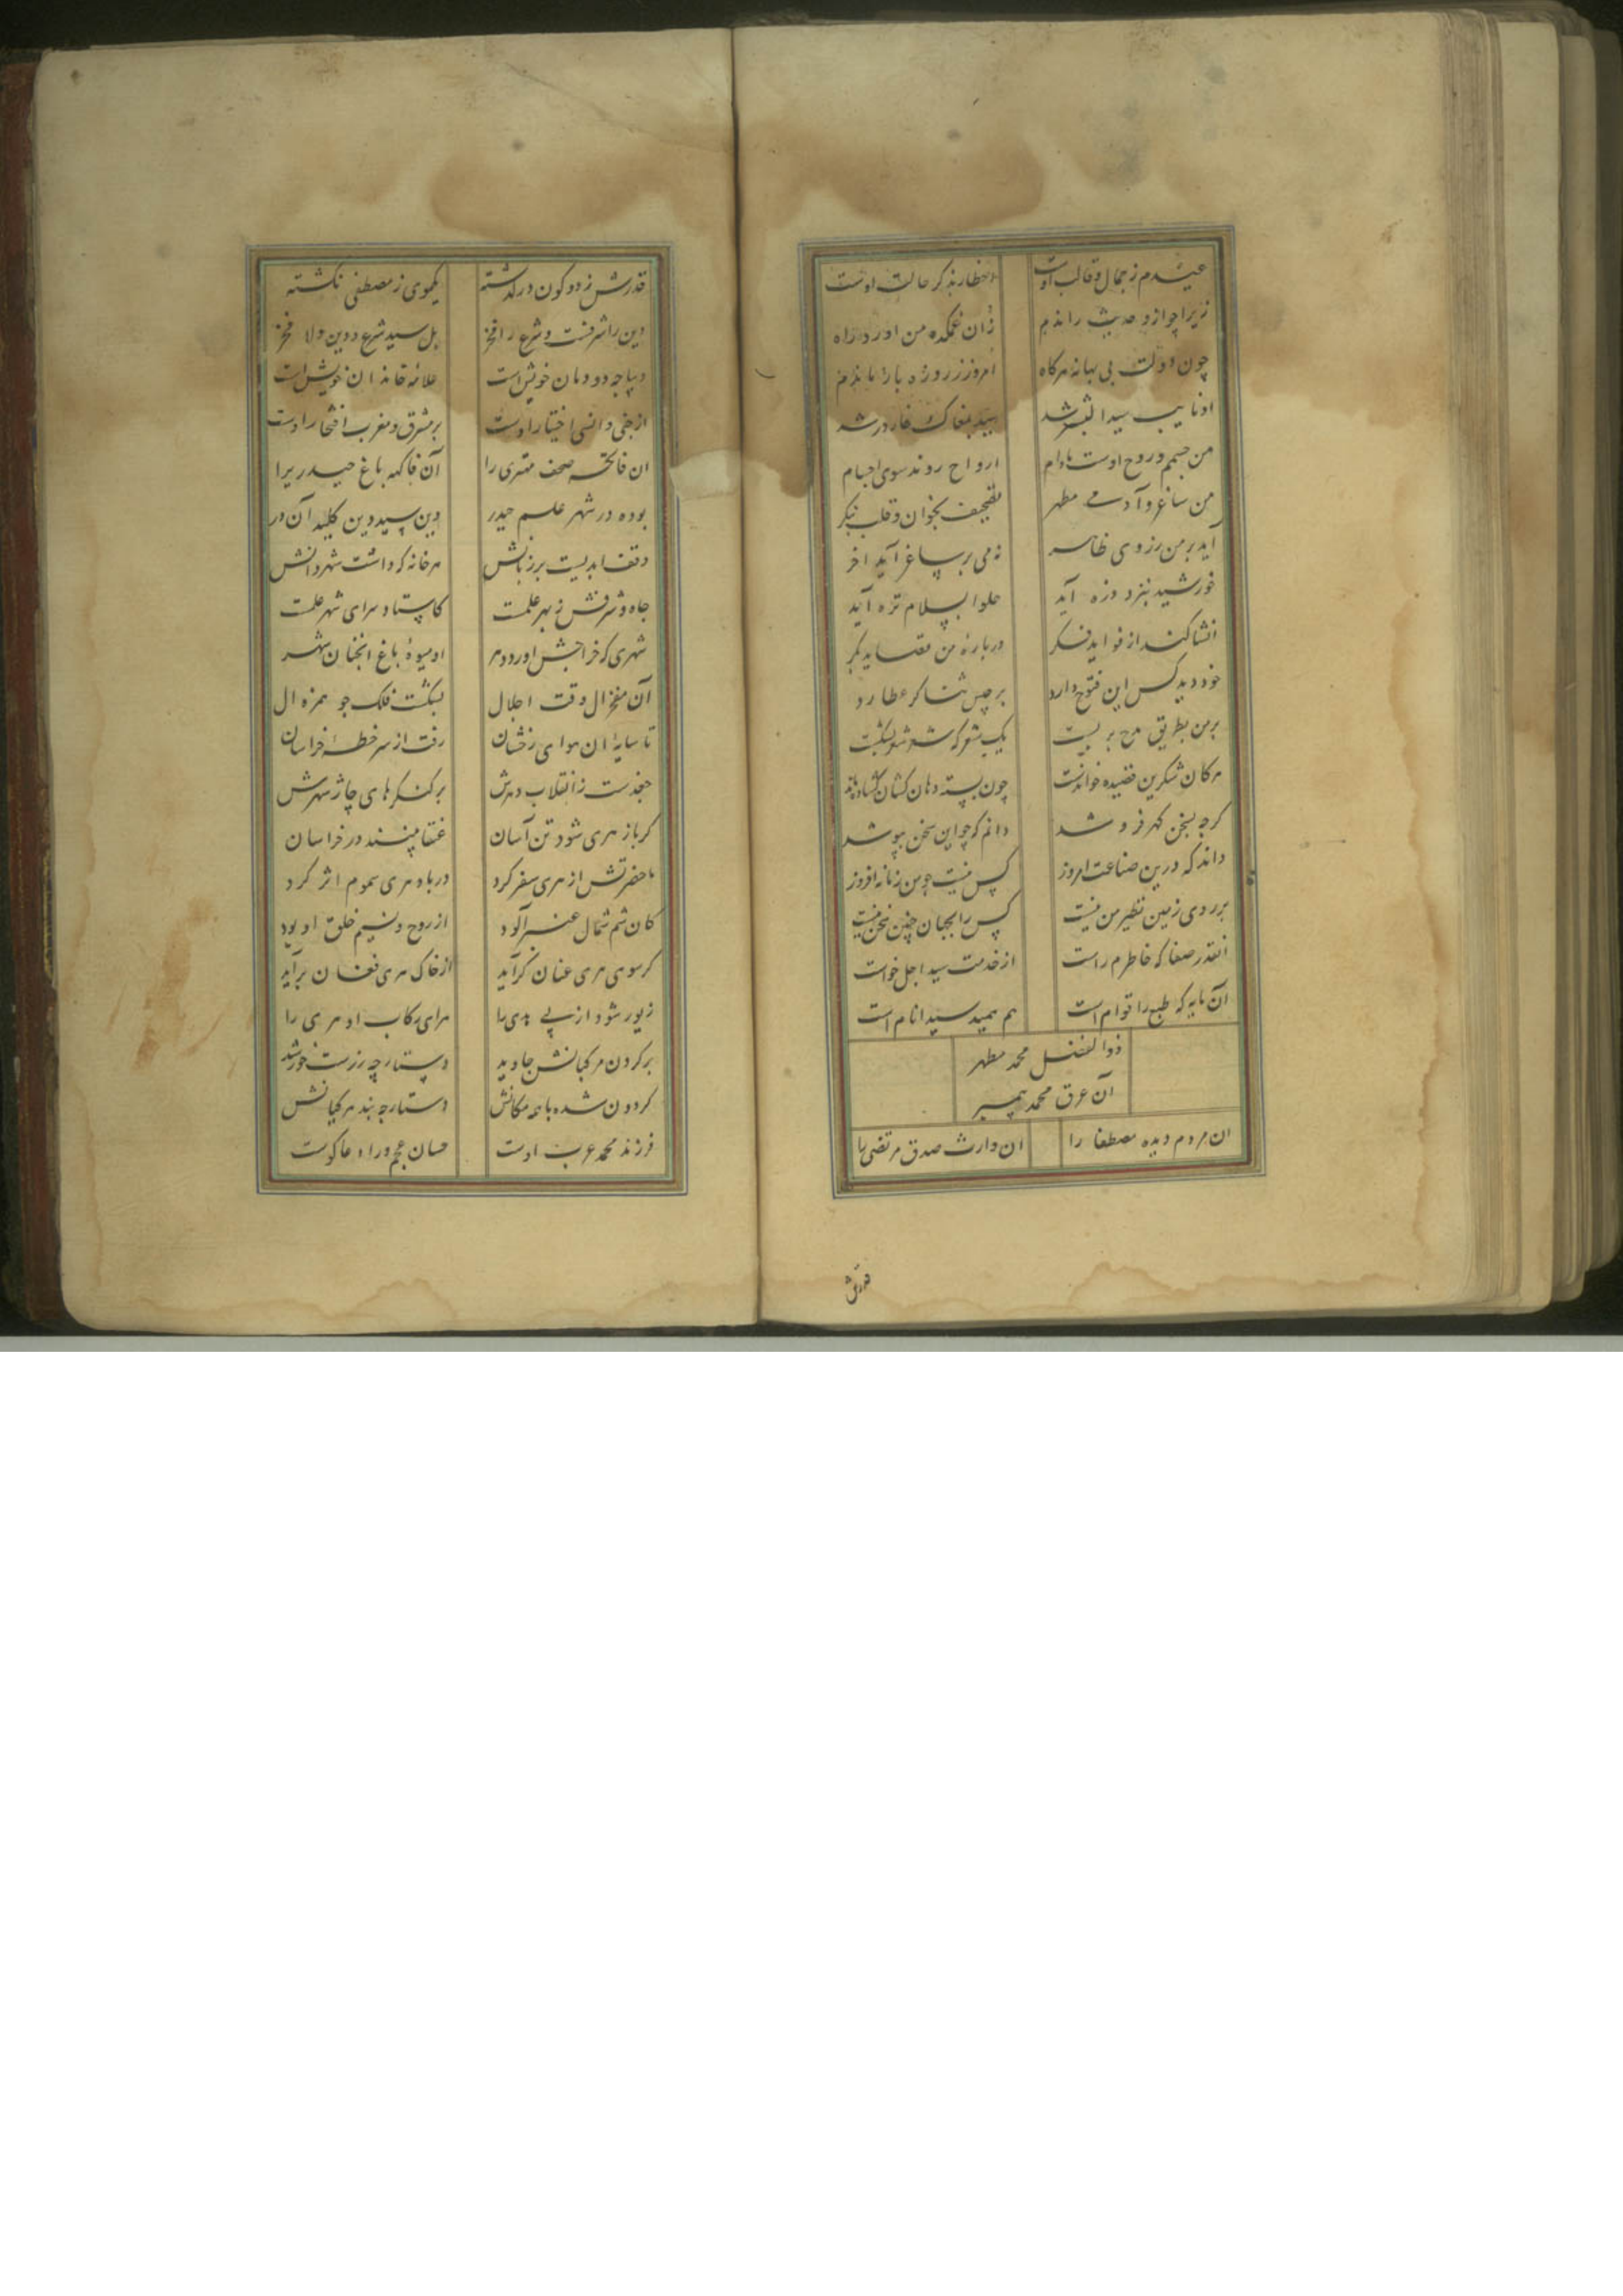 عیدم ز جمال و قالب اوست افطار بذکر حالت اوست
زیرا چو ازو حدیث راندم زان غمکده من اورد راه
چون دولت بی بهانه هرکاه امروز ز روزه باز ماندم
او نایب سید البشر شد بمغاک غار در شد
من جسم و روح اوست مادام ارواح روند سوی اجسام
من ساغر و آدمی مطهر تصحیف بخوان و قلب بنکر
آید بر من ز روی ظاهر نه می بر ساغر آید آخر
خورشید بنزد ذره آید حلوا بسلام تره آید
انشا کند از فواید فکر درباره من قصاید بکر
خود دید کس این فتوح دارد برجیس ثنا کر عطارد
بر من بطریق مدح بر بست یک شعر که شعر شعر بشکست
هر کان شکرین قصیده خواندست چون پسته دهان کشان کشاده ماند
کرچه بسخن کهر فروشد دانم که چو این سخن بپوشد
داند که درین صناعت امروز کس نیست چو من زمانه افروز
بر روی زمین نظیر من نیست کس را بجهان چنین سخن نیست
انقدر صفا که خاطرم راست از خدمت سید اجل خواست
آن مایه که طبع را قوام است هم سید انام است
ذو الفضل محمد مطهر
آن عرق محمد پیمبر
ان مردم دیده مصطفا را ان وارث صدق مرتضی را
قدرش
قدرش ز دو کون درگذشته یکموی ز مصطفی نکشته
دین را شرفست و شرع را فخر بل سید شرع و دین ولا فخر
دیباجه دودمان خویش است علامه خاندان خویش است
از جنی و انسی اختیار اوست بر مشرق و مغرب افتخار اوست
ان فاتحه صحف مهتری را آن فاکهه باغ حیدریرا
بوده در شهر علم حیدر وین سید دین کلید آن در
وقف ابدیست بر زبانش هر خانه که داشت شهر دانش
جاه و شرفش ز بهر علمست کاستاد سرای شهر علمست
شهری که خراجش اورد دهر او میوه باغ انچنان شهر
آن مفخر ال وقت اجلال بشکست فلک جو همزه ال
تا سایه ان همای رخشان رفت از سر خطه خراسان
جغدست ز انقلاب دهرش بر کنکرهای چار شهرش
کر باز هری شود تن آسان عنقا بینند در خراسان
تا حضرتش از هری سفر کرد در باد هری سموم اثر کرد
کان شم شمال عنبر آلود از روح و نسیم خلق او بود
کر سوی هری عنان کرآید از خاک هری فغان برآید
زیور شود از پی هدی را هرای رکاب او هری را
بر کردن مرکبانش جاوید دستارچه زرست خورشید
کردون شده با همه مکانش دستارچه بند مرکبانش
فرزند محمد عرب اوست حسان عجم ورا دعا کوست